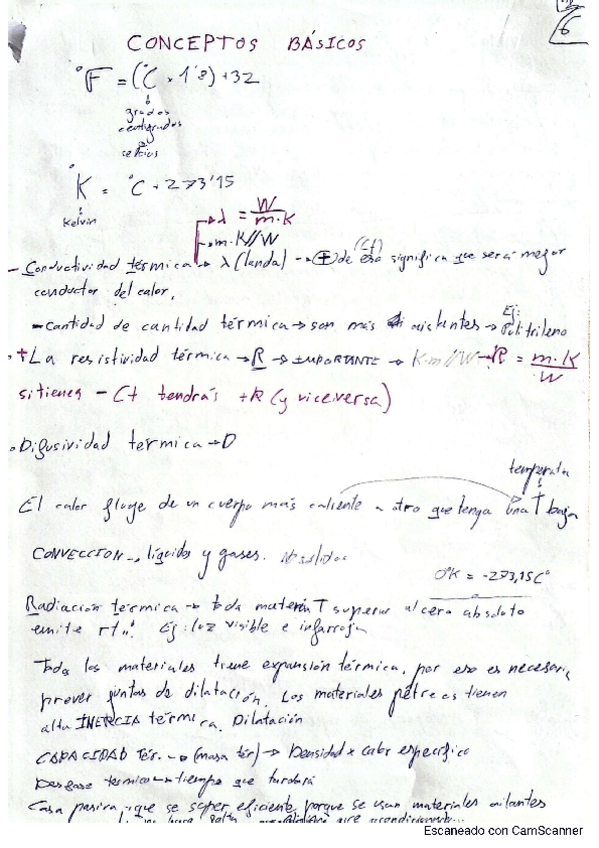 6
CONCEPTOS BÁSICOS
°F = (°C × 1'8) + 32
grados
centigrados
o
celcios
°K = °C + 273'15
Kelvin
λ = W/m·K
m·K//W
(Ct)
- Conductividad térmica → λ (landa) → + de eso significa que será mejor
conductor del calor.
- cantidad de cantidad térmica → son más aislantes → Ej:
+ La resistividad térmica → R → IMPORTANTE → K·m//W → R = m·K/W
si tienes - Ct tendrás + R (y viceversa)
Difusividad térmica → D
temperatu
El calor fluye de un cuerpo más caliente a otro que tenga una T baja
CONVECCION → líquidos y gases. N sólidos
0°K = -273,15C°
Radiación térmica → toda materia T superior al cero absoluto
emite rtº. Ej: luz visible e infarroja
Todos los materiales tiene expansión térmica, por eso es necesario
prever juntas de dilatación. Los materiales pétreos tienen
alta INERCIA térmica. Dilatación
CAPACIDAD tér. → (masa tér) → Densidad × calor específico
Desfase termico → tiempo que tardará
Casa pasiva → que se super eficiente porque se usan materiales ailantes
aire acondicionado...
Escaneado con CamScanner